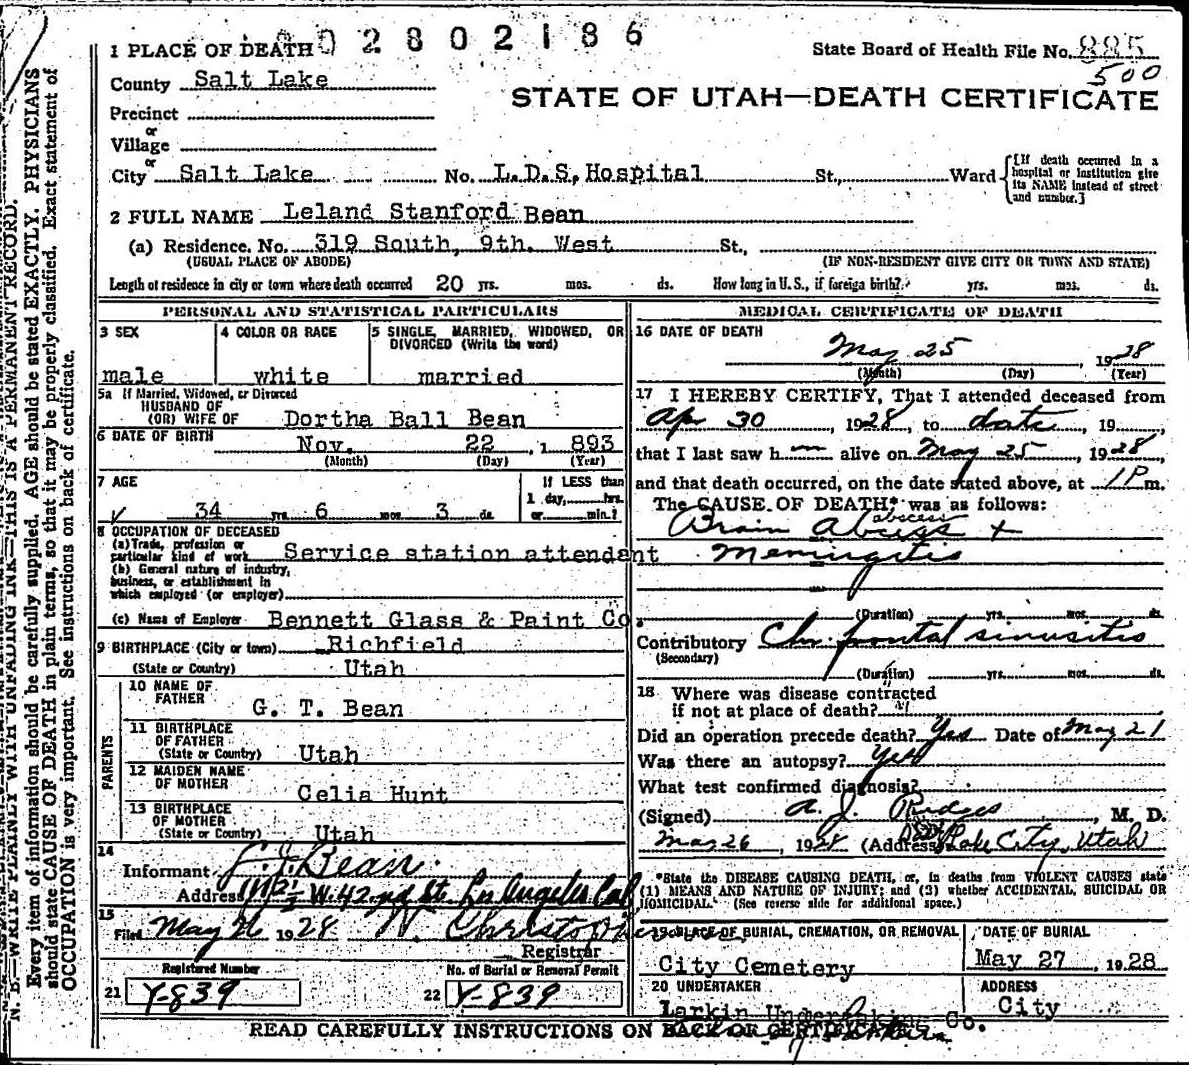 1 PLACE OF DEATH 02802186
State Board of Health File No. 885
500
County Salt Lake
STATE OF UTAH—DEATH CERTIFICATE
Precinct
or
Village
or
City Salt Lake No. L.D.S. Hospital St., Ward
[If death occurred in a
hospital or institution give
its NAME instead of street
and number.]
2 FULL NAME Leland Stanford Bean
(a) Residence. No. 319 South, 9th. West St.,
(USUAL PLACE OF ABODE) (IF NON-RESIDENT GIVE CITY OR TOWN AND STATE)
Length of residence in city or town where death occurred 20 yrs. mos. ds. How long in U. S., if foreign birth? yrs. mos. ds.
PERSONAL AND STATISTICAL PARTICULARS
3 SEX
male
4 COLOR OR RACE
white
5 SINGLE, MARRIED, WIDOWED, OR
DIVORCED (Write the word)
married
5a If Married, Widowed, or Divorced
HUSBAND OF
(OR) WIFE OF Dortha Ball Bean
6 DATE OF BIRTH Nov. 22 , 1 893
(Month) (Day) (Year)
7 AGE
34 yrs. 6 mos. 3 ds.
If LESS than
1 day, hrs.
or min.?
8 OCCUPATION OF DECEASED
(a) Trade, profession or
particular kind of work Service station attendent
(b) General nature of industry,
business, or establishment in
which employed (or employer)
(c) Name of Employer Bennett Glass & Paint Co.
9 BIRTHPLACE (City or town) Richfield
(State or Country) Utah
PARENTS
10 NAME OF
FATHER G. T. Bean
11 BIRTHPLACE
OF FATHER
(State or Country) Utah
12 MAIDEN NAME
OF MOTHER Celia Hunt
13 BIRTHPLACE
OF MOTHER
(State or Country) Utah
14
Informant Bean
Address W. 42nd St. Los Angeles Cal
15
Filed May 26 1928 W. Christopherson
Registrar
Registered Number
21 Y-839
No. of Burial or Removal Permit
22 Y-839
MEDICAL CERTIFICATE OF DEATH
16 DATE OF DEATH
May 25 1928
(Month) (Day) (Year)
17 I HEREBY CERTIFY, That I attended deceased from
Apr 30, 1928, to date, 19
that I last saw h m alive on May 25, 1928,
and that death occurred, on the date stated above, at 1 P m.
The CAUSE OF DEATH* was as follows:
abscess
Brain +
Meningitis
(Duration) yrs. mos. ds.
Contributory Chr frontal sinusitis
(Secondary)
(Duration) yrs. mos. ds.
18 Where was disease contracted
if not at place of death?
Did an operation precede death? Yes Date of May 21
Was there an autopsy? Yes
What test confirmed diagnosis?
(Signed) A. J. , M. D.
May 26, 1928 (Address) Salt Lake City, Utah
*State the DISEASE CAUSING DEATH, or, in deaths from VIOLENT CAUSES state
(1) MEANS AND NATURE OF INJURY; and (2) whether ACCIDENTAL, SUICIDAL OR
HOMICIDAL. (See reverse side for additional space.)
19 PLACE OF BURIAL, CREMATION, OR REMOVAL
City Cemetery
DATE OF BURIAL
May 27, 1928
20 UNDERTAKER
Larkin Undertaking Co.
ADDRESS
City
READ CAREFULLY INSTRUCTIONS ON BACK OF CERTIFICATE
N. B.—WRITE PLAINLY WITH UNFADING INK—THIS IS A PERMANENT RECORD.
Every item of information should be carefully supplied. AGE should be stated EXACTLY. PHYSICIANS
should state CAUSE OF DEATH in plain terms, so that it may be properly classified. Exact statement of
OCCUPATION is very important. See instructions on back of certificate.